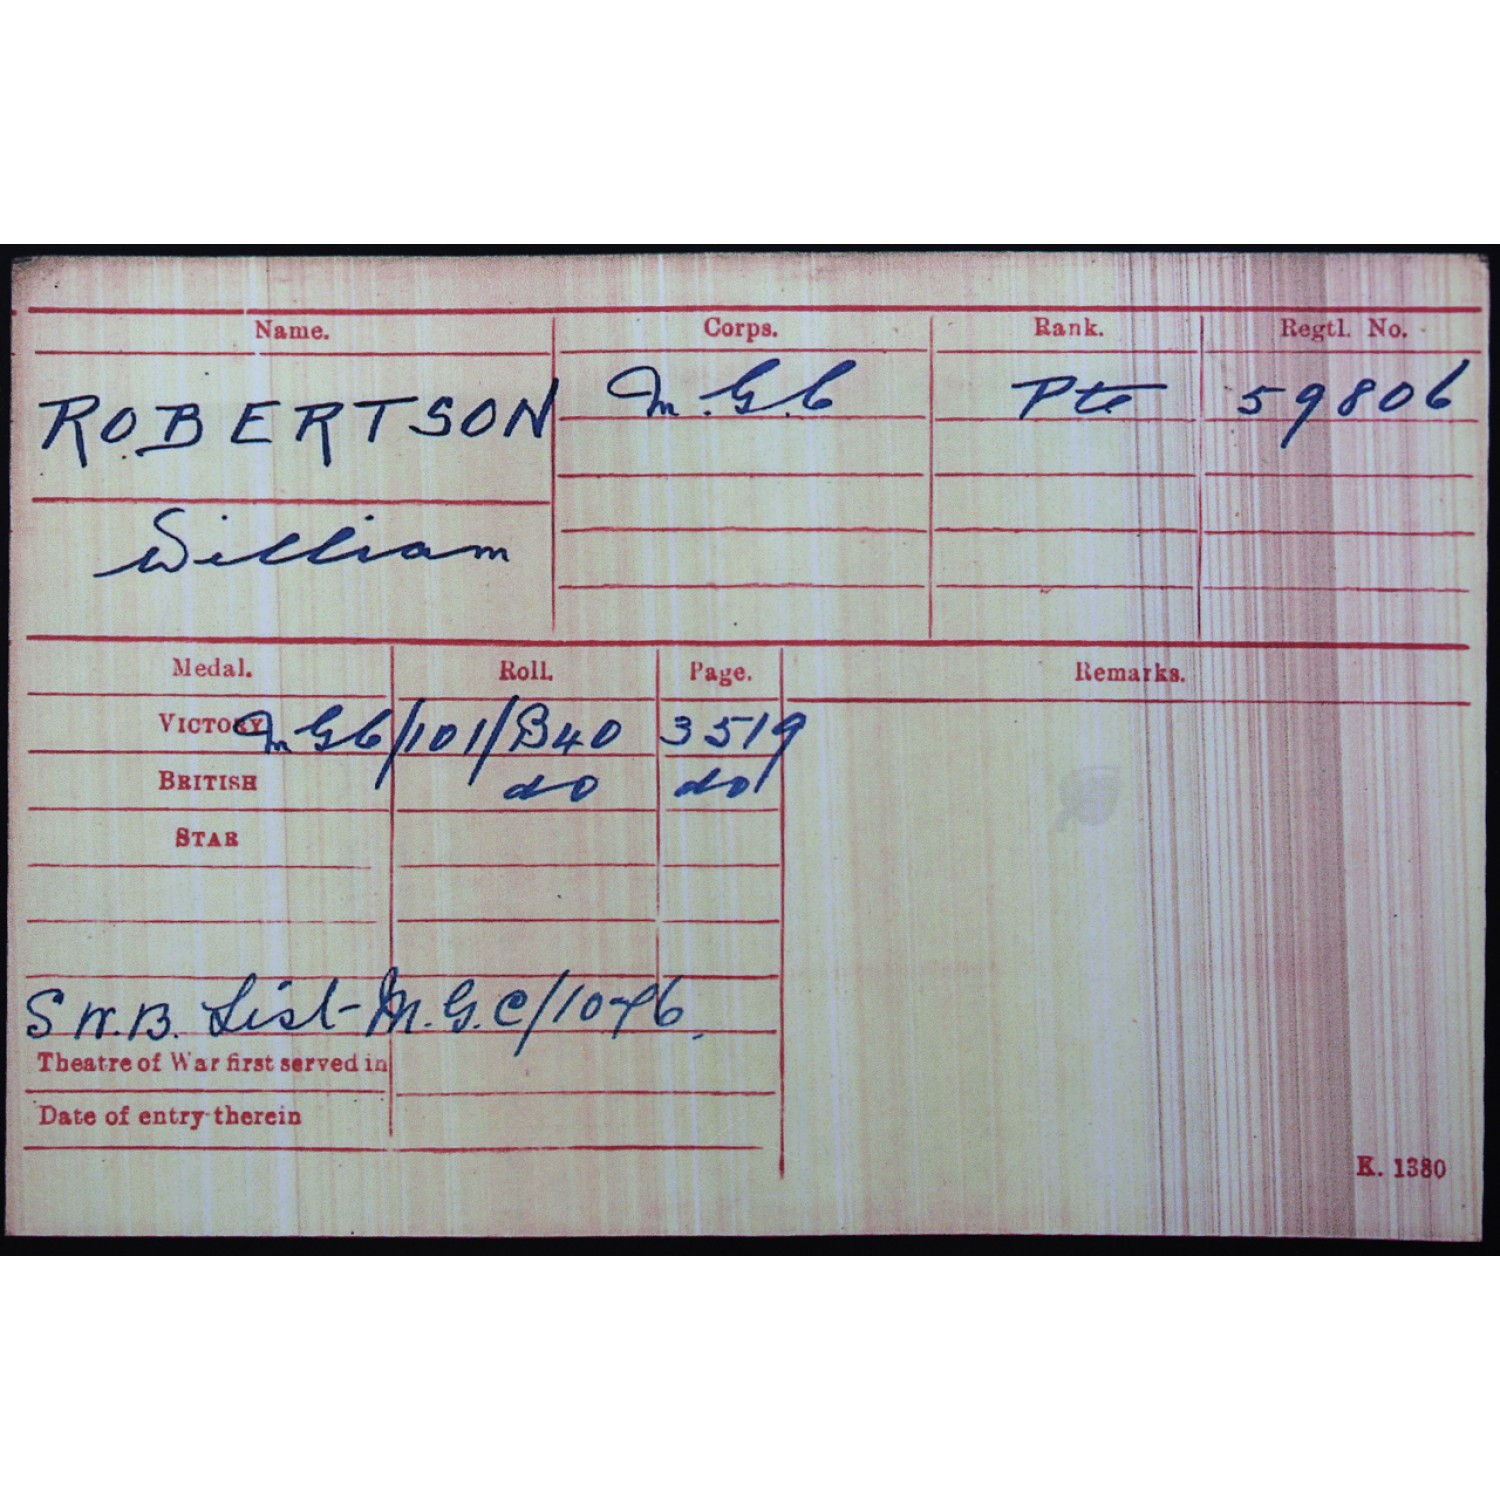 Name. Corps. Rank. Regtl. No.
ROBERTSON M.G.C Pte 59806
William
Medal. Roll. Page. Remarks.
VICTORY MGC/101/B40 3519
BRITISH do do
STAR
S W.B. List - M.G.C/1076.
Theatre of War first served in
Date of entry therein
K. 1380